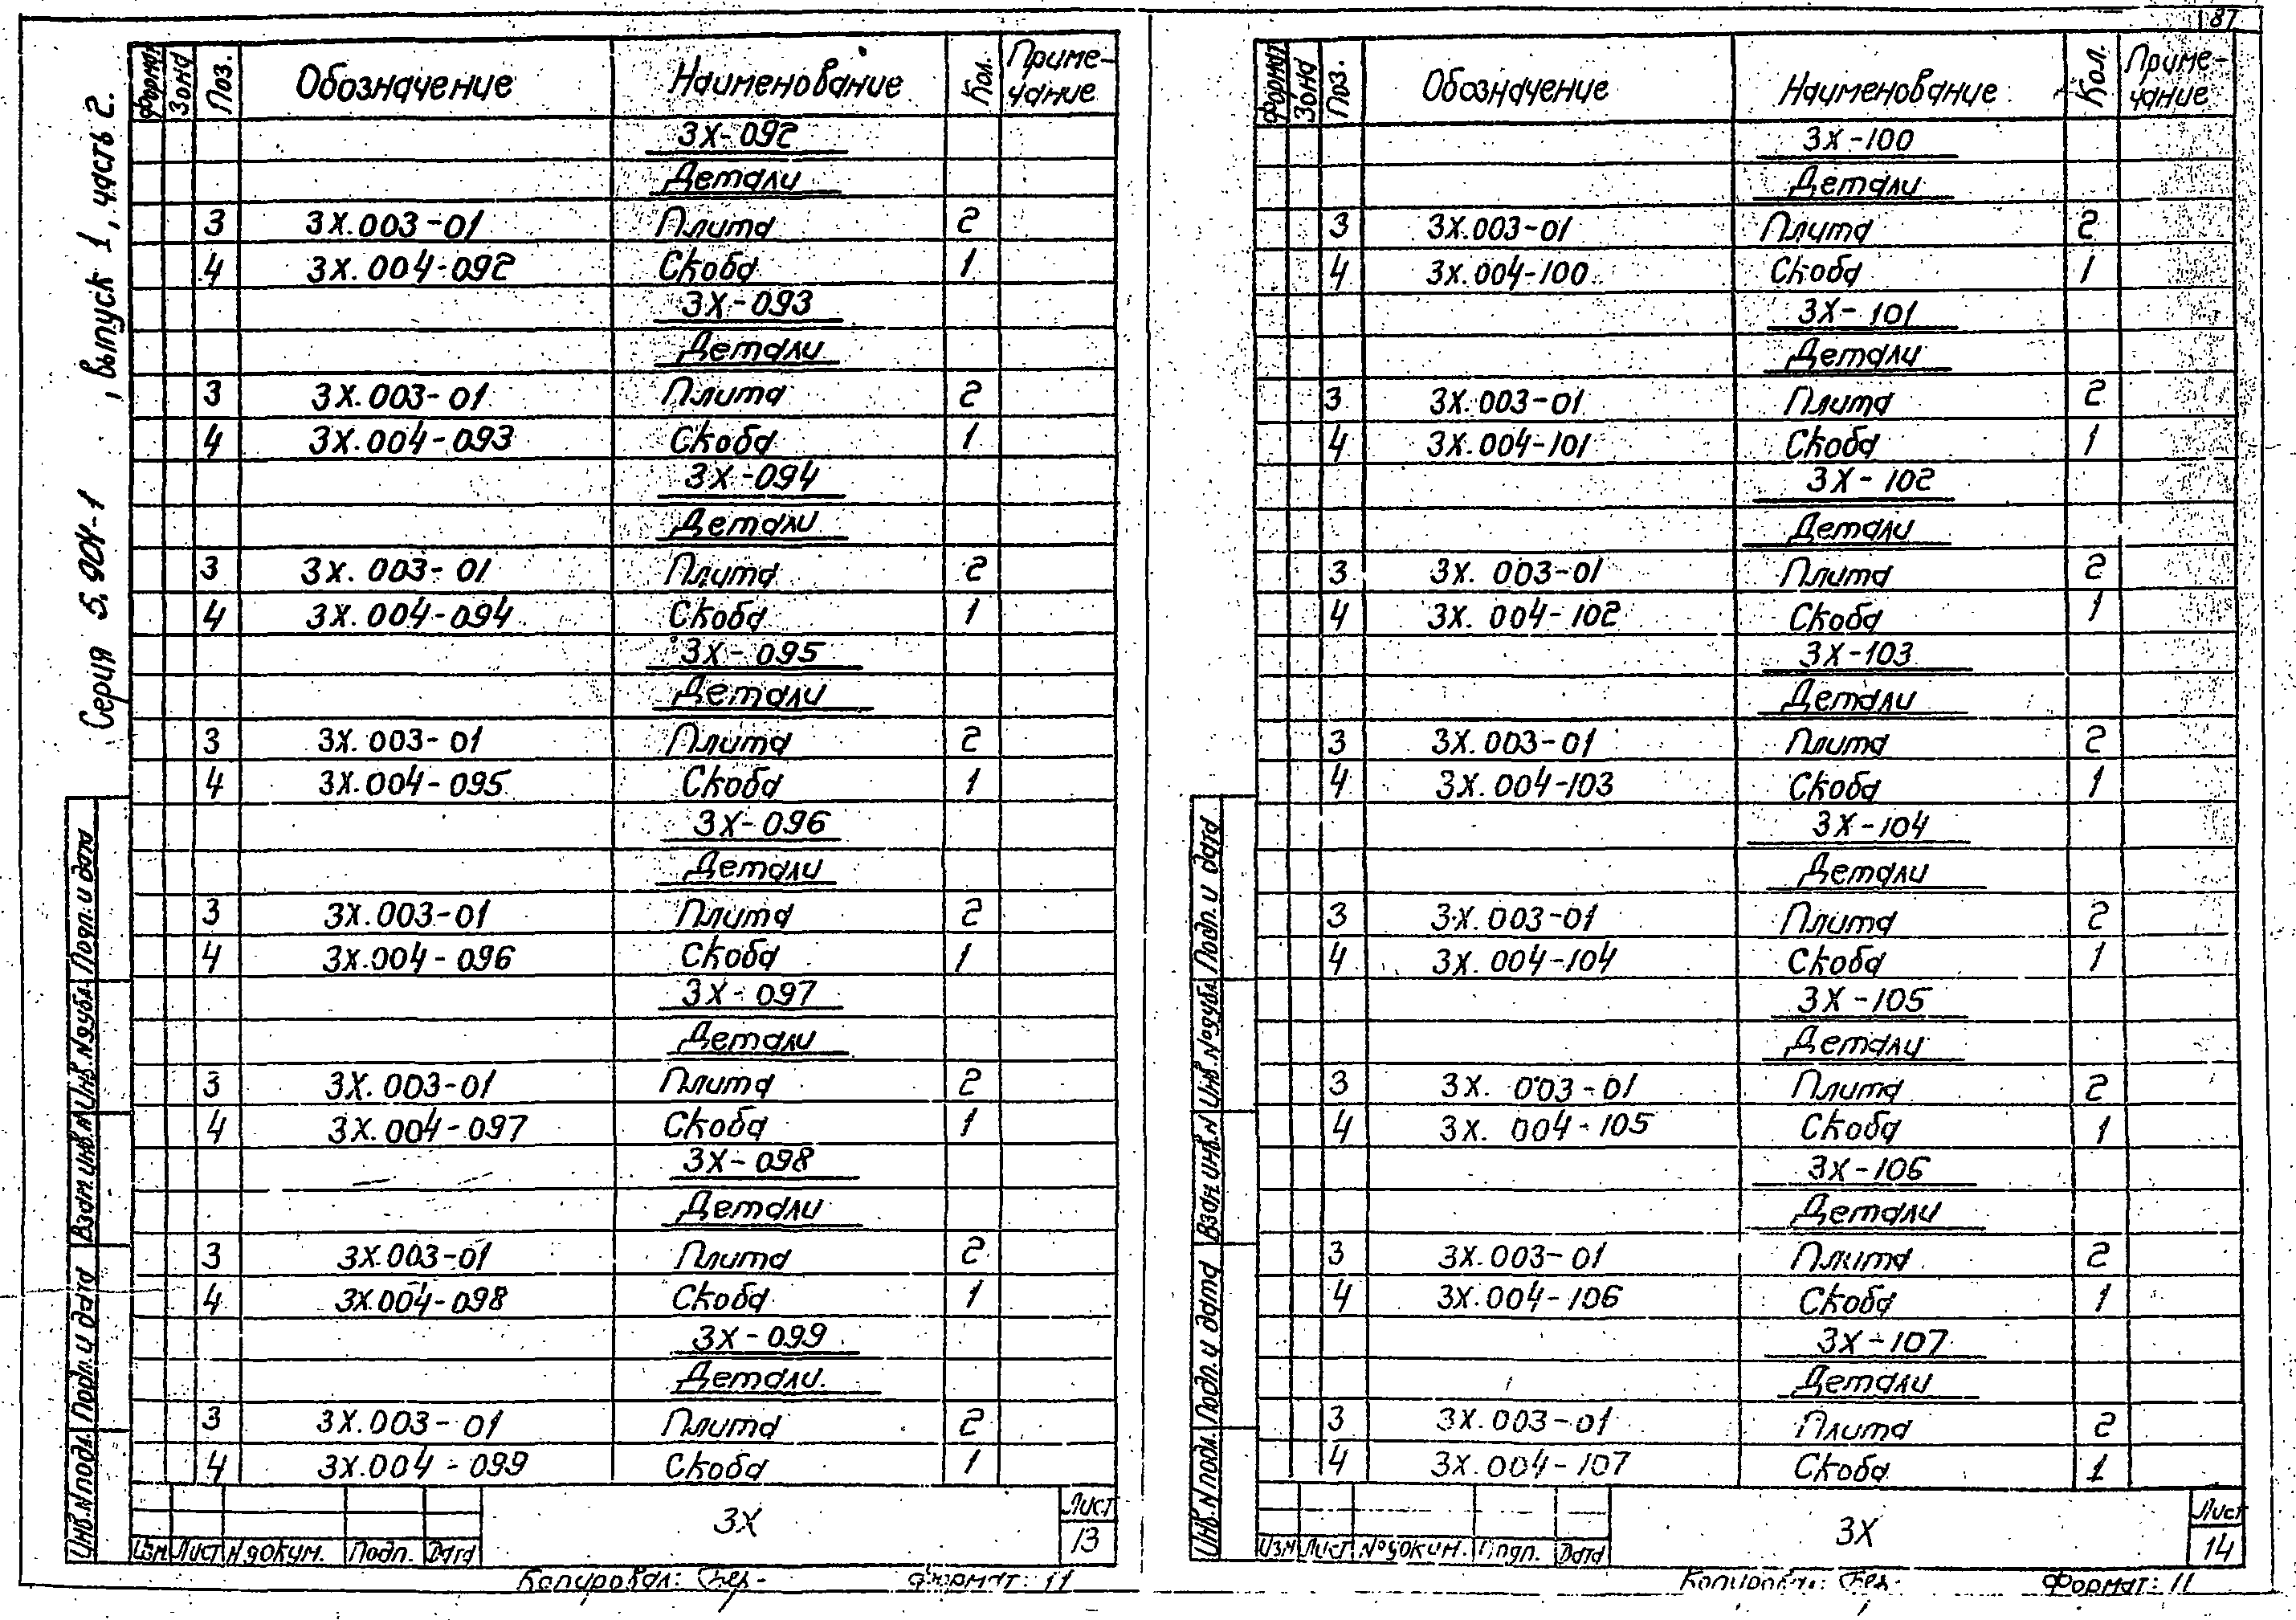 87
Серия 5.904-1 , выпуск 1, часть 2.
Формат Зона Поз. Обозначение Наименование Кол. Приме-
чание
ЗХ-092
Детали
3 ЗХ.003-01 Плита 2
4 ЗХ.004-092 Скоба 1
ЗХ-093
Детали
3 ЗХ.003-01 Плита 2
4 ЗХ.004-093 Скоба 1
ЗХ-094
Детали
3 ЗХ.003-01 Плита 2
4 ЗХ.004-094 Скоба 1
ЗХ-095
Детали
3 ЗХ.003-01 Плита 2
4 ЗХ.004-095 Скоба 1
ЗХ-096
Детали
3 ЗХ.003-01 Плита 2
4 ЗХ.004-096 Скоба 1
ЗХ-097
Детали
3 ЗХ.003-01 Плита 2
4 ЗХ.004-097 Скоба 1
ЗХ-098
Детали
3 ЗХ.003-01 Плита 2
4 ЗХ.004-098 Скоба 1
ЗХ-099
Детали.
3 ЗХ.003-01 Плита 2
4 ЗХ.004-099 Скоба 1
Инв.N подл. Подп. и дата Взам.инв.N Инв.Nдубл. Подп. и дата
Изм Лист N докум. Подп. Дата
ЗХ
Лист
13
Копировал: Формат: 11
Формат Зона Поз. Обозначение Наименование Кол. Приме-
чание
ЗХ-100
Детали
3 ЗХ.003-01 Плита 2
4 ЗХ.004-100 Скоба 1
ЗХ-101
Детали
3 ЗХ.003-01 Плита 2
4 ЗХ.004-101 Скоба 1
ЗХ-102
Детали
3 ЗХ.003-01 Плита 2
4 ЗХ.004-102 Скоба 1
ЗХ-103
Детали
3 ЗХ.003-01 Плита 2
4 ЗХ.004-103 Скоба 1
ЗХ-104
Детали
3 ЗХ.003-01 Плита 2
4 ЗХ.004-104 Скоба 1
ЗХ-105
Детали
3 ЗХ.003-01 Плита 2
4 ЗХ.004-105 Скоба 1
ЗХ-106
Детали
3 ЗХ.003-01 Плита 2
4 ЗХ.004-106 Скоба 1
ЗХ-107
Детали
3 ЗХ.003-01 Плита 2
4 ЗХ.004-107 Скоба 1
Инв.N подл. Подп. и дата Взам инв.N Инв.N°дубл. Подп. и дата
Изм Лист N°докум. Подп. Дата
ЗХ
Лист
14
Копировал: Формат: 11